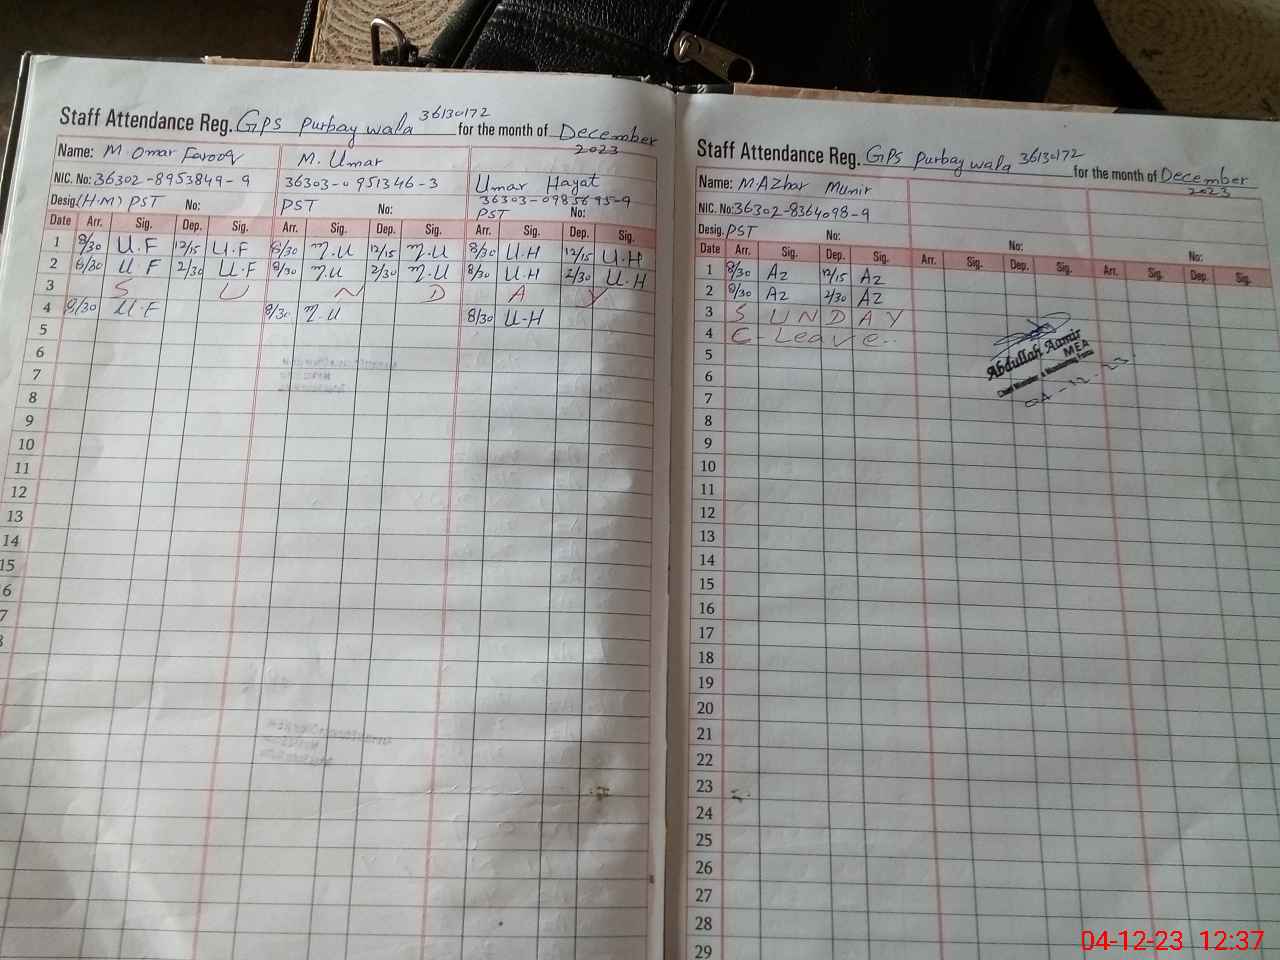 Staff Attendance Reg. GPS Purbay wala 36130172 for the month of December 2023
Name: M. Omar Farooq M. Umar Umar Hayat
NIC. No: 36302-8953849-9 36303-0951346-3 36303-0985695-9
Desig. (H.M) PST No: PST No: PST No:
Date Arr. Sig. Dep. Sig. Arr. Sig. Dep. Sig. Arr. Sig. Dep. Sig.
1 8/30 U.F 12/15 U.F 8/30 M.U 12/15 M.U 8/30 U.H 12/15 U.H
2 8/30 U.F 2/30 U.F 8/30 M.U 2/30 M.U 8/30 U.H 2/30 U.H
3 S U N D A Y
4 8/30 U.F 8/30 M.U 8/30 U-H
5
6
7
8
9
10
11
12
13
14
15
6
7
8
Staff Attendance Reg. GPS Purbay wala 36130172 for the month of December 2023
Name: M Azhar Munir
NIC. No: 36302-8364098-9
Desig. PST No: No: No:
Date Arr. Sig. Dep. Sig. Arr. Sig. Dep. Sig. Arr. Sig. Dep. Sig.
1 8/30 Az 12/15 Az
2 8/30 Az 2/30 Az
3 S U N D A Y
4 C-Leave.
Abdullah Aamir
MEA
04-12-23
5
6
7
8
9
10
11
12
13
14
15
16
17
18
19
20
21
22
23
24
25
26
27
28
29
04-12-23 12:37